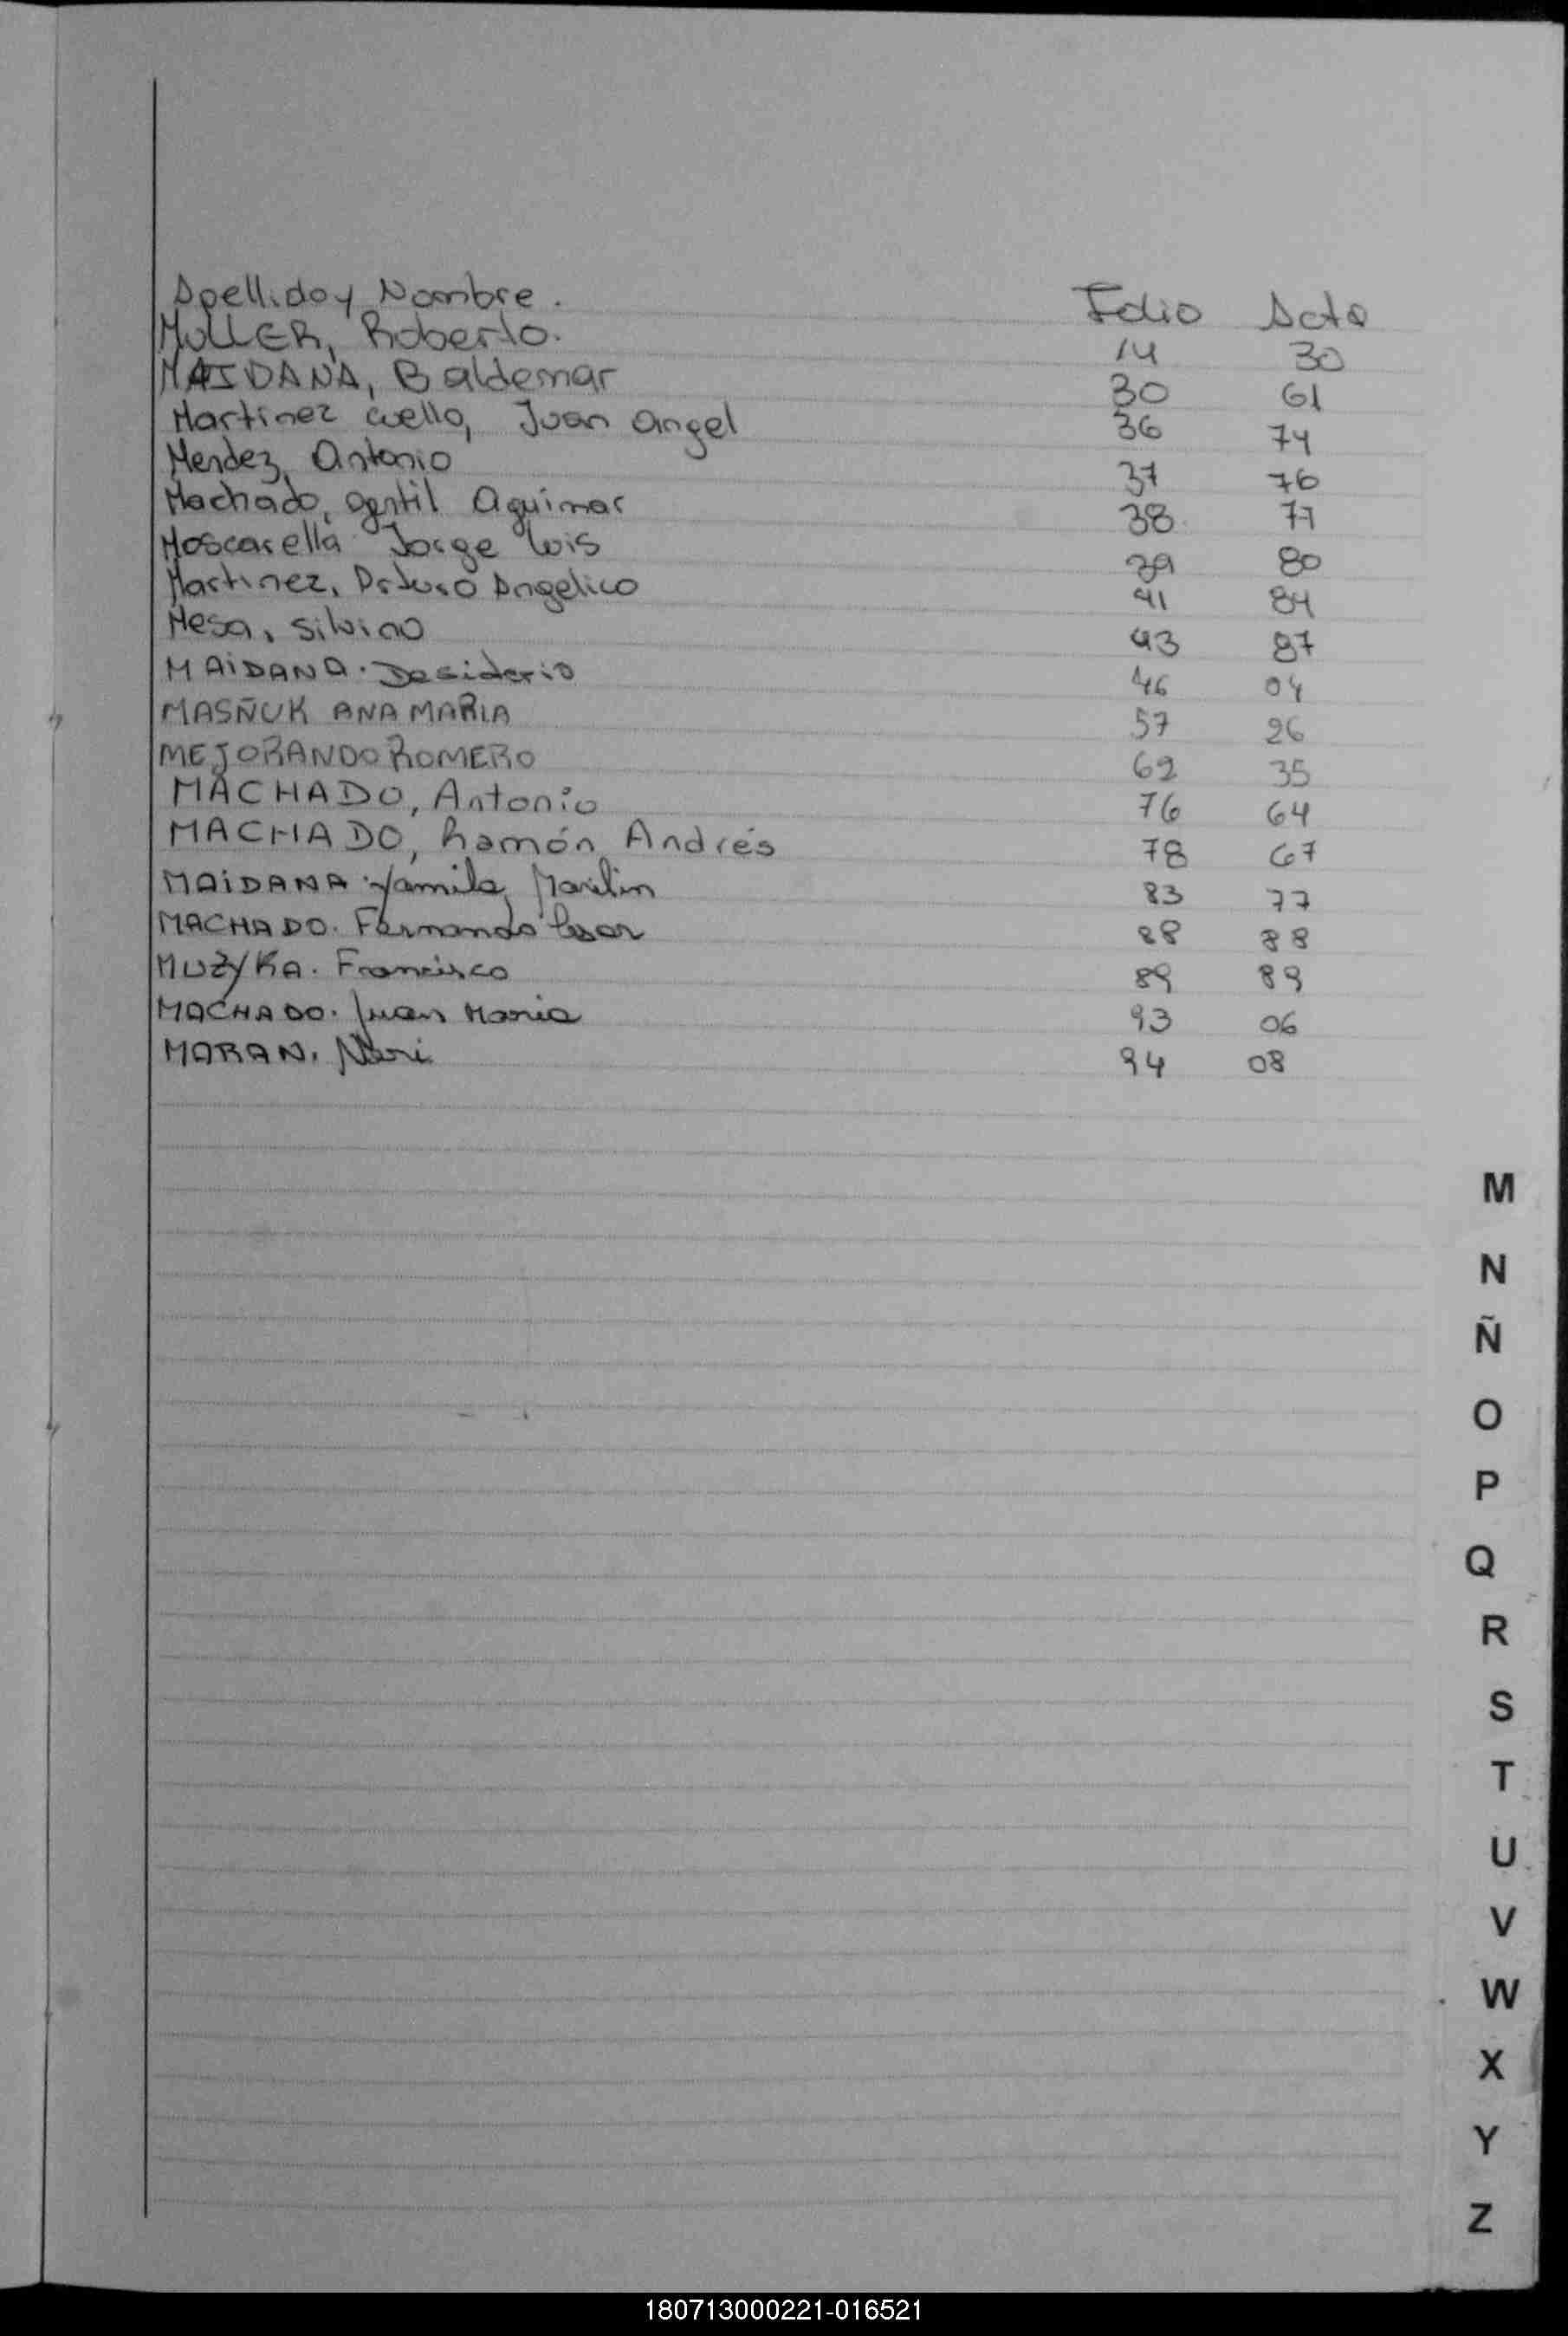 Apellido y Nombre. Folio Acta
MULLER, Roberto. 14 30
MAIDANA, Baldemar 30 61
Martinez Cuello, Juan Angel 36 74
Mendez, Antonio 37 76
Machado, Gentil Aguimar 38 77
Moscarella Jorge Luis 39 80
Martinez, Arturo Angelico 41 84
Mesa, Silvino 43 87
MAIDANA. Desiderio 46 04
MASÑUK ANA MARIA 57 26
MEJORANDO ROMERO 62 35
MACHADO, Antonio 76 64
MACHADO, Ramón Andrés 78 67
MAIDANA Yamila Marilin 83 77
MACHADO. Fernando Cesar 88 88
MUZYKA. Francisco 89 89
MACHADO. Juan Maria 93 06
MARAN. Neri 94 08
M
N
Ñ
O
P
Q
R
S
T
U
V
W
X
Y
Z
180713000221-016521